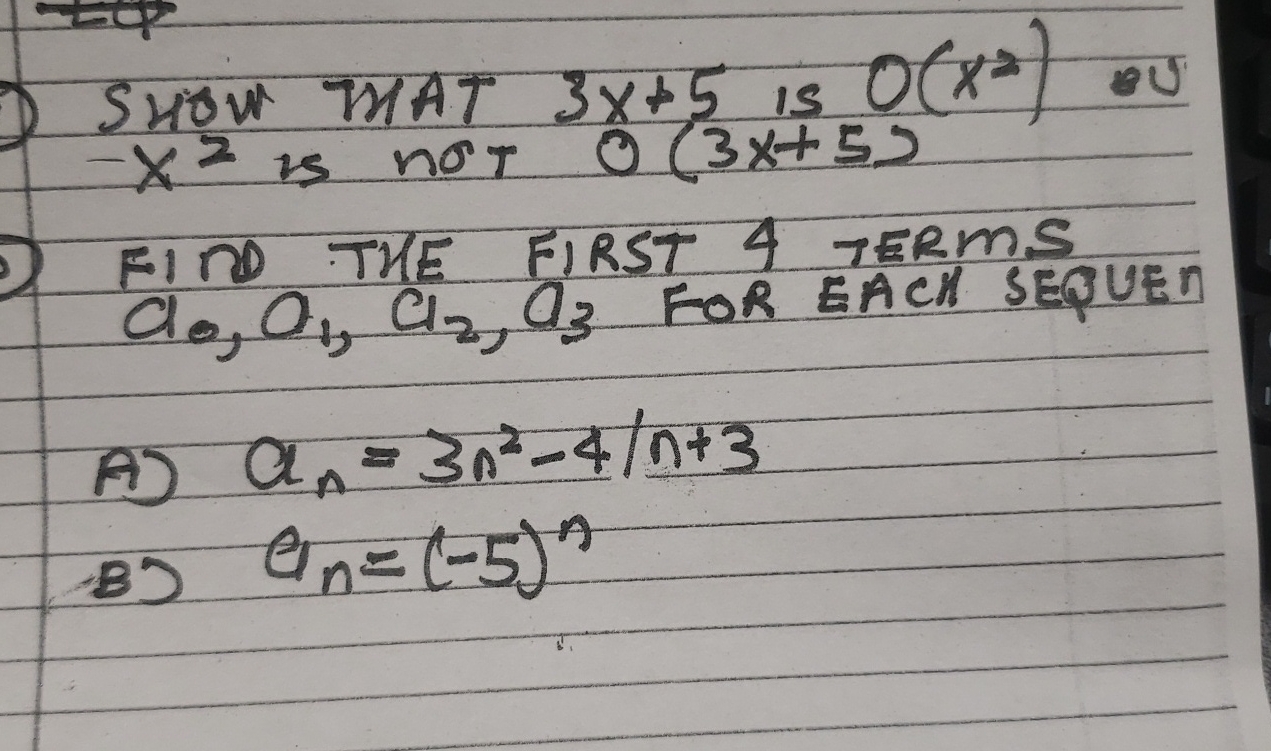 SHOW THAT 3x+5 is O(x²)
-x² is not O(3x+5)
FIND THE FIRST 4 TERMS
a₀, a₁, a₂, a₃ FOR EACH SEQUEN
A) aₙ = 3n²-4/n+3
B) aₙ = (-5)ⁿ